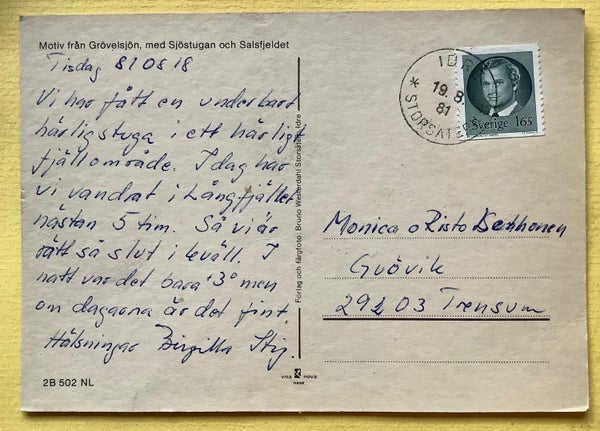 Motiv från Grövelsjön, med Sjöstugan och Salsfjeldet
Tisdag 810818
Vi har fått en underbart
härlig stuga i ett härligt
fjällområde. Idag har
vi vandrat i Långfjället
nästan 5 tim. Så vi är
rätt så slut i kväll. I
natt var det bara +3° men
om dagarna är det fint.
Hälsningar Birgitta Stig.
2B 502 NL
Förlag och färgfoto: Bruno Westerdahl Storsätern, Idre
IDRE
19.8.
81
* STORSÄTE
Sverige 165
Monica o Risto
Guövik
29203 Trensum